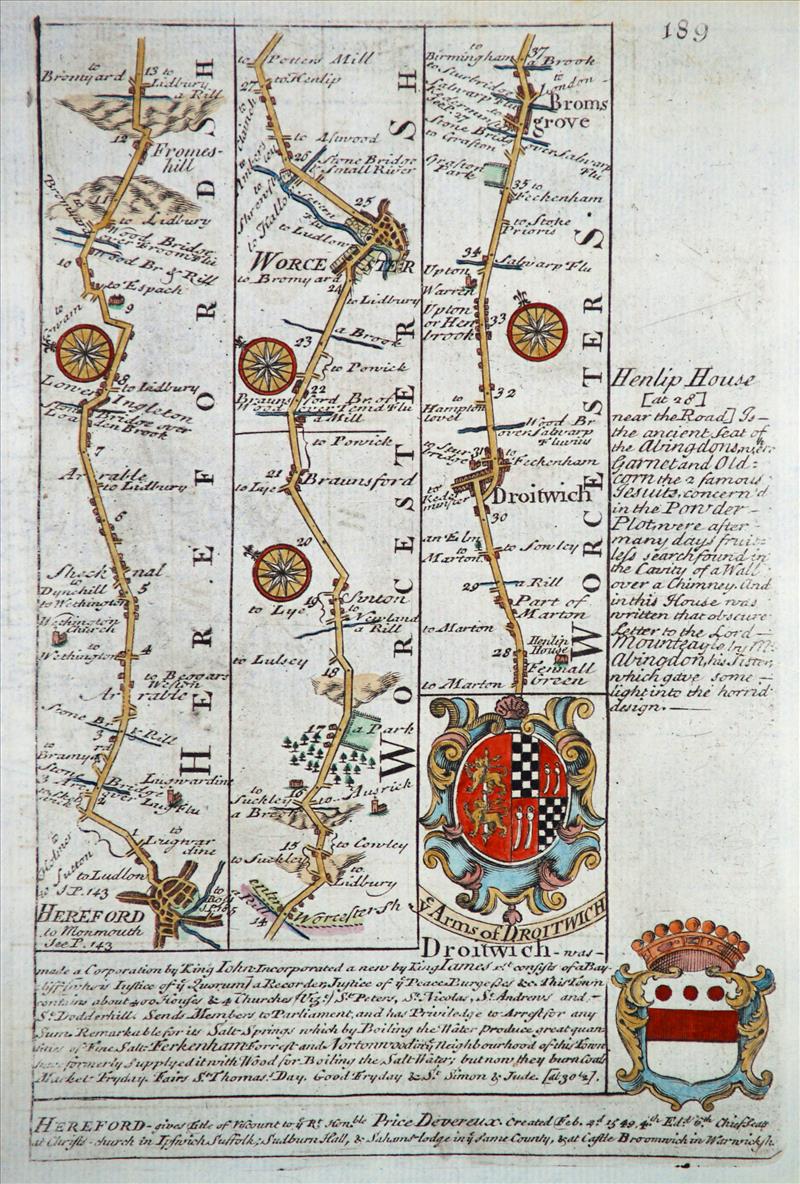 189
to Bromyard
13 to
Lidbury
a Rill
12
Fromes-
hill
11
to Lidbury
Wood Bridge
over Broom Flu
10
Wood Br & Rill
to Espach
9
8
to Lidbury
Lower
Ingleton
Stone Bridge over
Loaden Brook
7
Arrable
to Lidbury
6
Sheck nal
Dynchill
to Wethington
5
Wethington
Church
to
Wethington
4
to Beggars
Weston
Arrable
Stone Br & Rill
3
Lugwardin
Bridge
over Lug Flu
2
1
to
Lugwar
dine
to Sutton
to Ludlow
S.P. 143
HEREFORD
to Monmouth
See P. 143
HEREFORDSH
to Potters Mill
27
to Henlip
to Astwood
26
Stone Bridge
& Small River
25
to Ludlow
WORCESTER
to Bromyard
24
to Lidbury
a Brook
23
to Powick
22
Braunsford Br. of
Wood over Temd Flu
a Mill
to Powick
21
Braunsford
to Lye
20
to Lye
19
Sinton
to Newland
a Rill
to Lulsey
18
17
a Park
16
to Suckley
to Ausrick
a Brook
15
to Cowley
to Suckley
to Lidbury
enter
Worcestersh
a Rill
14
WORCESTERSH
to
Birmingham
37
a Brook
to Sturbridge
to London
Salwarp Flu
Broms
grove
Stone Bridge over Salwarp
Flu
to Grafton
Grafton
Park
35 to
Feckenham
to Stoke
Prioris
34
Salwarp Flu
Upton
Warren
Upton
or Hen
brook
33
32
to
Hampton
lovel
Wood Br
over Salwarp
Fluvius
31
to Feckenham
Droitwich
30
an Elm
to
Marton
to Sowley
29
a Rill
Part of
Marton
to Marton
Henlip
House
28
Fennall
Green
to Marton
WORCESTERS.
Henlip House
[at 28]
near the Road] Is
the ancient Seat of
the Abingdons, where
Garnet and Old=
corn the 2 famous
Jesuits, concern'd
in the Powder
Plot, were after
many days fruit
less search found in
the Cavity of a Wall
over a Chimney. And
in this House was
written that obscure
Letter to the Lord
Mounteagle by Mrs
Abingdon, his Sister,
which gave some
light into the horrid
design.
ye Arms of DROITWICH
Droitwich was
made a Corporation by King Iohn Incorporated a new by King Iames 1st consists of a Bay-
liff (who is Iustice of ye Quorum) a Recorder, Iustice of ye Peace Burgesses &c. This Town
contains about 400 Houses & 4 Churches (Viz.t) St Peters, St Nicolas, St Andrews and
St Dodderhill. Sends Members to Parliament, and has Priviledge to Arrest for any
Sum. Remarkable for its Salt-Springs which by Boiling the Water produce great quan
tities of Fine Salt: Ferkenham Forrest and Norton wood in ye Neighbourhood of this Town
formerly Supplyed it with Wood for Boiling the Salt Water; but now they burn Coal.
Market Fryday. Fairs St Thomas. Day, Good Fryday & St Simon & Jude. [at 30½].
HEREFORD gives Title of Viscount to ye Rt Honble Price Devereux. Created Feb. 4d 1549, 4th Edd 6th Chief Seats
at Christ-church in Ipswich Suffolk; Sudburn Hall, & Sahams-lodge in ye same County, & at Castle Broomwich in Warwicksh.